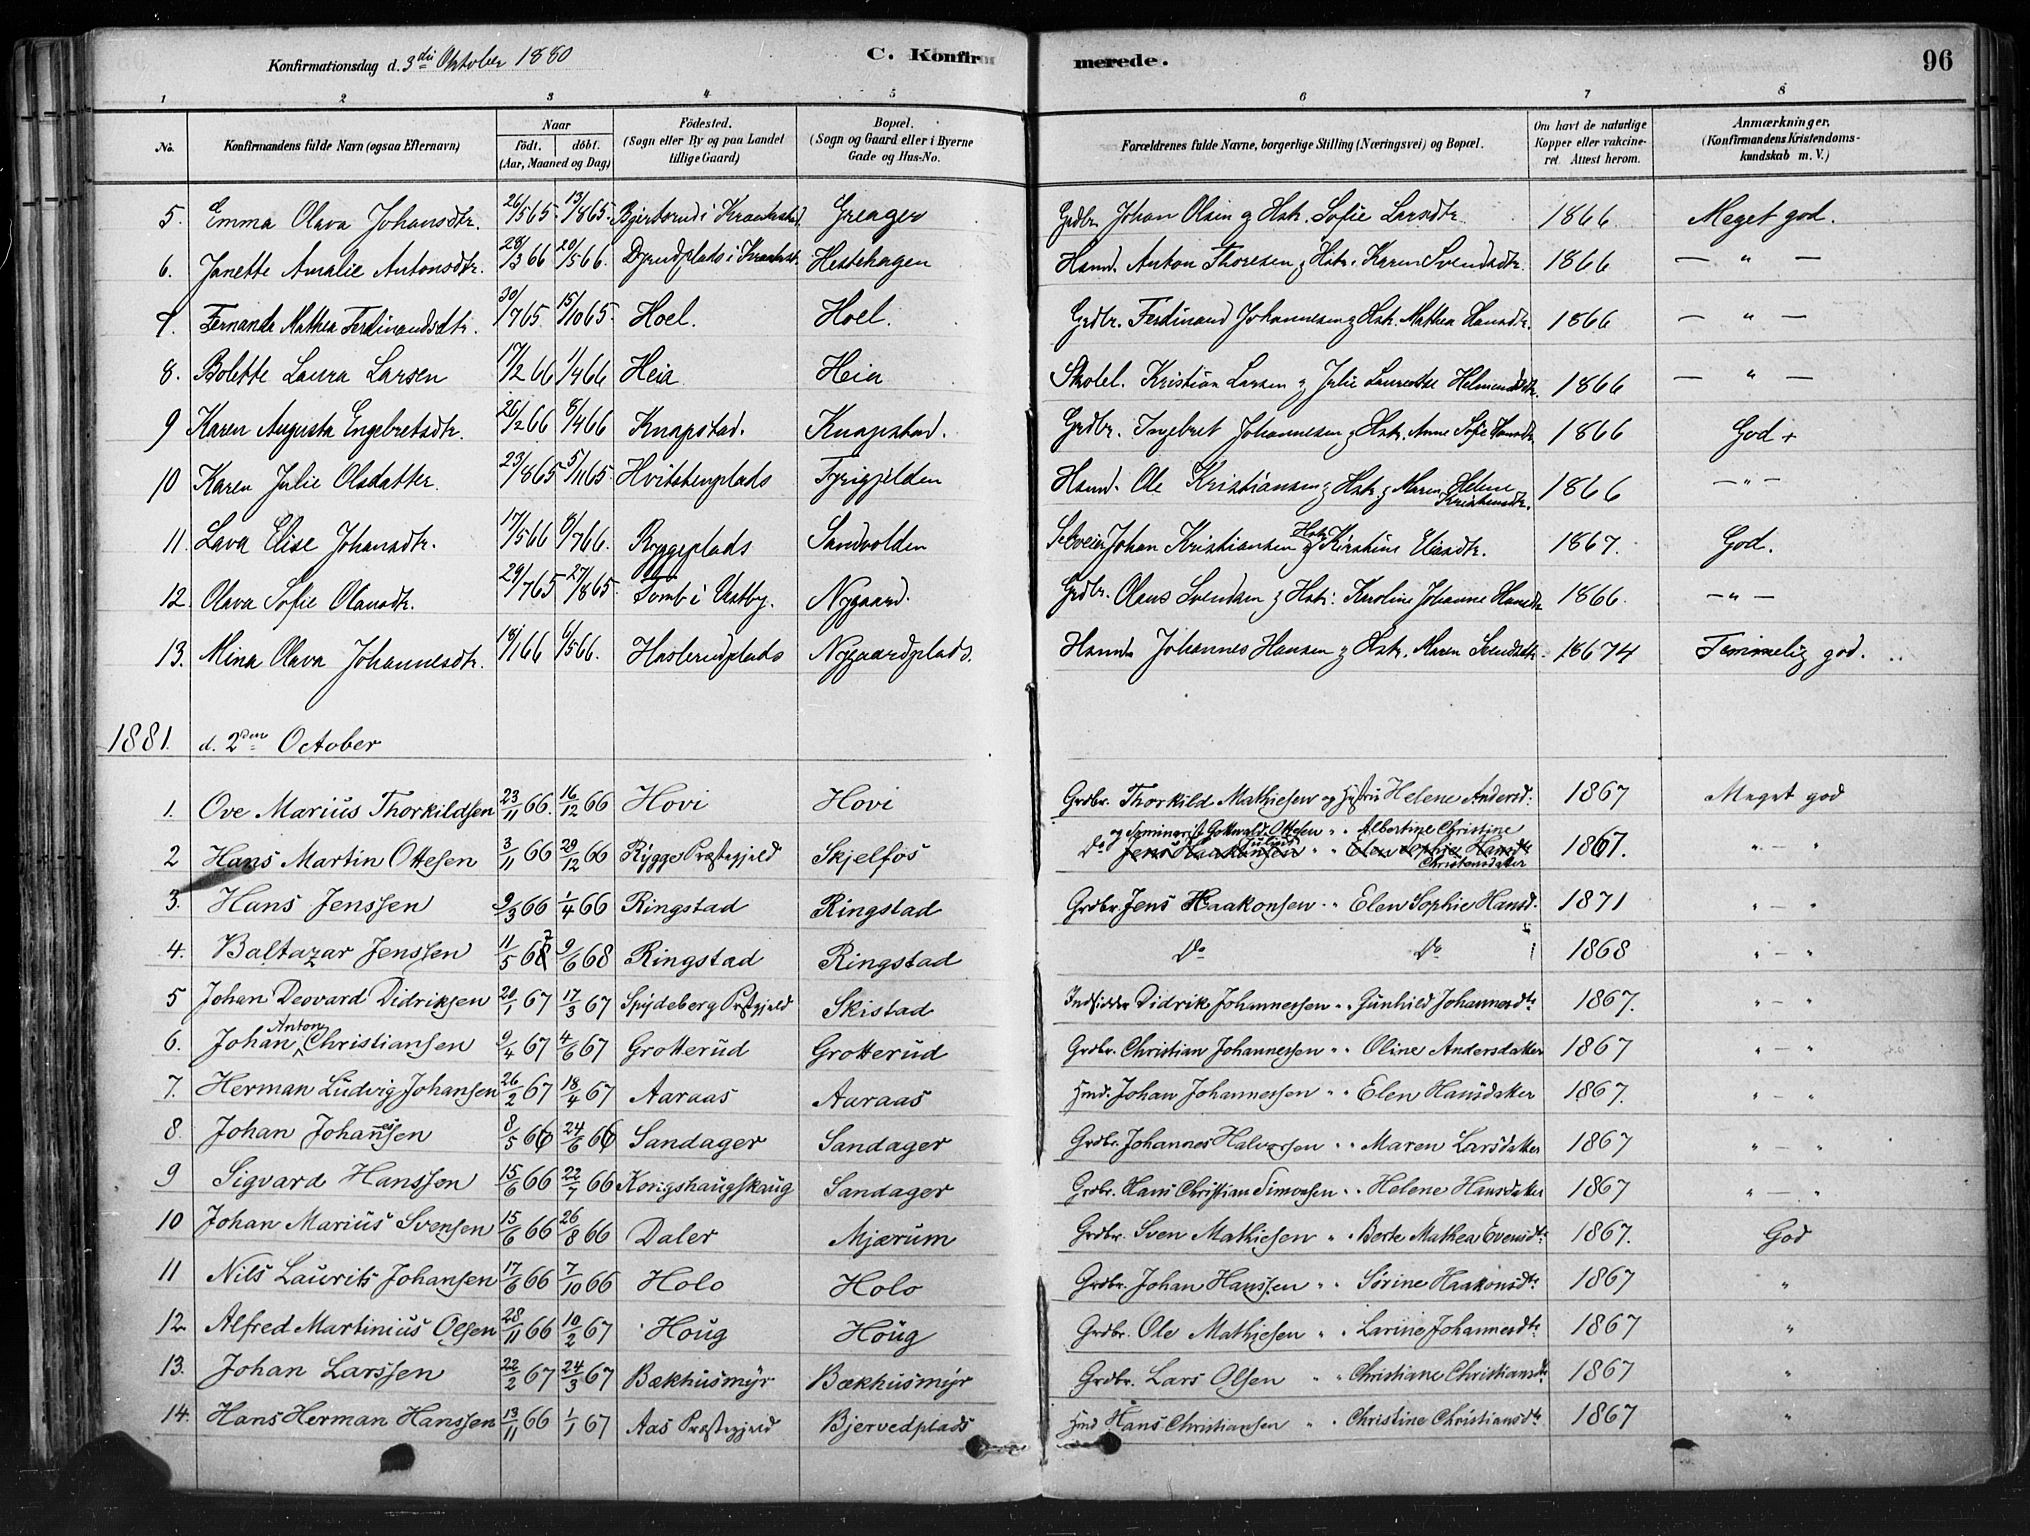 Konfirmationsdag d. 3die Oktober 1880 C. Konfirmerede. 96
1 2 3 4 5 6 7 8
No. Konfirmandens fulde Navn (ogsaa Efternavn) Naar födt. döbt. (Aar, Maaned og Dag) Födested. (Sogn eller By og paa Landet tillige Gaard) Bopæl. (Sogn og Gaard eller i Byerne Gade og Hus-No. Forældrenes fulde Navne, borgerlige Stilling (Næringsvei) og Bopæl. Om havt de naturlige Kopper eller vakcineret. Attest herom. Anmærkninger, (Konfirmandens Kristendomskundskab m. V.)
5. Emma Olava Johansdtr. 26/5 65. 13/8 65. i Kraakstad Greager Grdbr. Johan Olsen og Hstr. Sofie Larsdtr. 1866. Meget god.
6. Janette Amalie Antonsdtr. 28/3 66 20/5 66. i Kraakst. Hestehagen Hmd. Anton Thoresen og Hstr. Karen Svendsdtr. 1866 — " —
7. Fernanda Mathea Ferdinandsdtr. 30/7 65. 15/10 65. Hoel. Hoel. Grdbr. Ferdinand Johannesen og Hstr. Mathea Hansdtr. 1866 — " —
8. Bolette Laura Larsen 17/2 66 1/4 66 Heia Heia Skolel. Kristian Larsen og Julie Laurentse 1866 — " —
9 Karen Augusta Engebretsdtr. 26/2 66 8/4 66 Knapstad. Knapstad. Grdbr. Ingebret Johannesen og Hstr. Anne Sofie Hansdtr. 1866 God +
10 Karen Julie Olsdatter. 23/8 65 5/11 65 Hvitstenplads Fyrigjelden Hmd. Ole Kristiansen og Hstr. Maren Helene Kristensdtr. 1866 — " —
11. Lava Elise Johansdtr. 17/5 66 8/7 66. Ryggeplads Sandvolden Selveier Johan Kristiansen og Hstr. Kirstine Eliasdtr. 1867. God.
12. Olava Sofie Olausdtr. 29/7 65 27/8 65. Tomb i Vestby. Nygaard. Grdbr. Olaus Svendsen og Hstr. Karoline Johanne Hansdtr 1866. — " —
13. Mina Olava Johannesdtr. 18/1 66 6/5 66. Haslerudplads Nygaardplads. Hmd. Johannes Hansen og Hstr. Maren Svendsdtr. 18674 Temmelig god.
1881. d. 2den October
1. Ove Marius Thorkildsen 23/11 66. 16/12 66 Hovi Hovi Grdbr. Thorkild Mathiesen og Hustru Helene Andersd: 1867 Meget god
og Seminarist Gottwald Ottesen " " Albertine Christine
2 Hans Martin Ottesen 3/11 66 29/12 66 Rygge Præstegjeld Skjelfos Do Jens Haakonsen " " Elen Sophie Hansdtr Christensdatter 1867. " — "
3. Hans Jenssen 9/3 66 1/4 66 Ringstad Ringstad Grdbr. Jens Haakonsen " " Elen Sophie Hansd. 1871 " — "
4. Baltazar Jenssen 11/5 67 9/6 68 Ringstad Ringstad Do Do 1868 " — "
5 Johan Deovard Didriksen 20/1 67 17/3 67 Spydeberg Præstgjeld Skistad Indsidder Didrik Johannessen " " Gunhild Johannesdtr 1867. " — "
6. Johan Anton Christiansen 9/4 67 4/6 67 Grotterud Grotterud Grdbr. Christian Johannessen " " Oline Andersdatter 1867 " "
7. Herman Ludvig Johansen 26/2 67 18/4 67 Aaraas Aaraas Hmd. Johan Johannessen " " Elen Hansdatter 1867. " — "
8. Johan Johannesen 8/5 66 24/6 66 Sandager Sandager Grdbr. Johannes Halvorsen " " Maren Larsdatter 1867 " — "
9 Sigvard Hanssen 15/6 66 22/7 66 Kongshaugskaug Sandager Grdbr. Hans Christian Simonsen " " Helene Hansdatter 1867 " — "
10 Johan Marius Svensen 15/6 66 26/8 66 Daler Mjærum Grdbr. Sven Mathiesen " " Berte Mathea Evensdtr 1867. God
11 Nils Laurits Johansen 17/6 66 7/10 66 Holo Holo Grdbr. Johan Hanssen " " Sørine Haakonsdtr 1867 "
12 Alfred Martinius Olsen 28/11 66 10/2 67 Houg Houg Grdbr. Ole Mathiesen " " Larine Johannesdtr 1867 "
13. Johan Larssen 22/2 67 24/3 67 Bækhusmyr Bækhusmyr Grdbr. Lars Olsen " " Christiane Christiansdtr 1867 "
14. Hans Herman Hanssen 13/11 66 1/1 67 Aas Præstegjeld Bjervedplads Hmd Hans Christiansen " " Christine Christiansdtr 1867 "